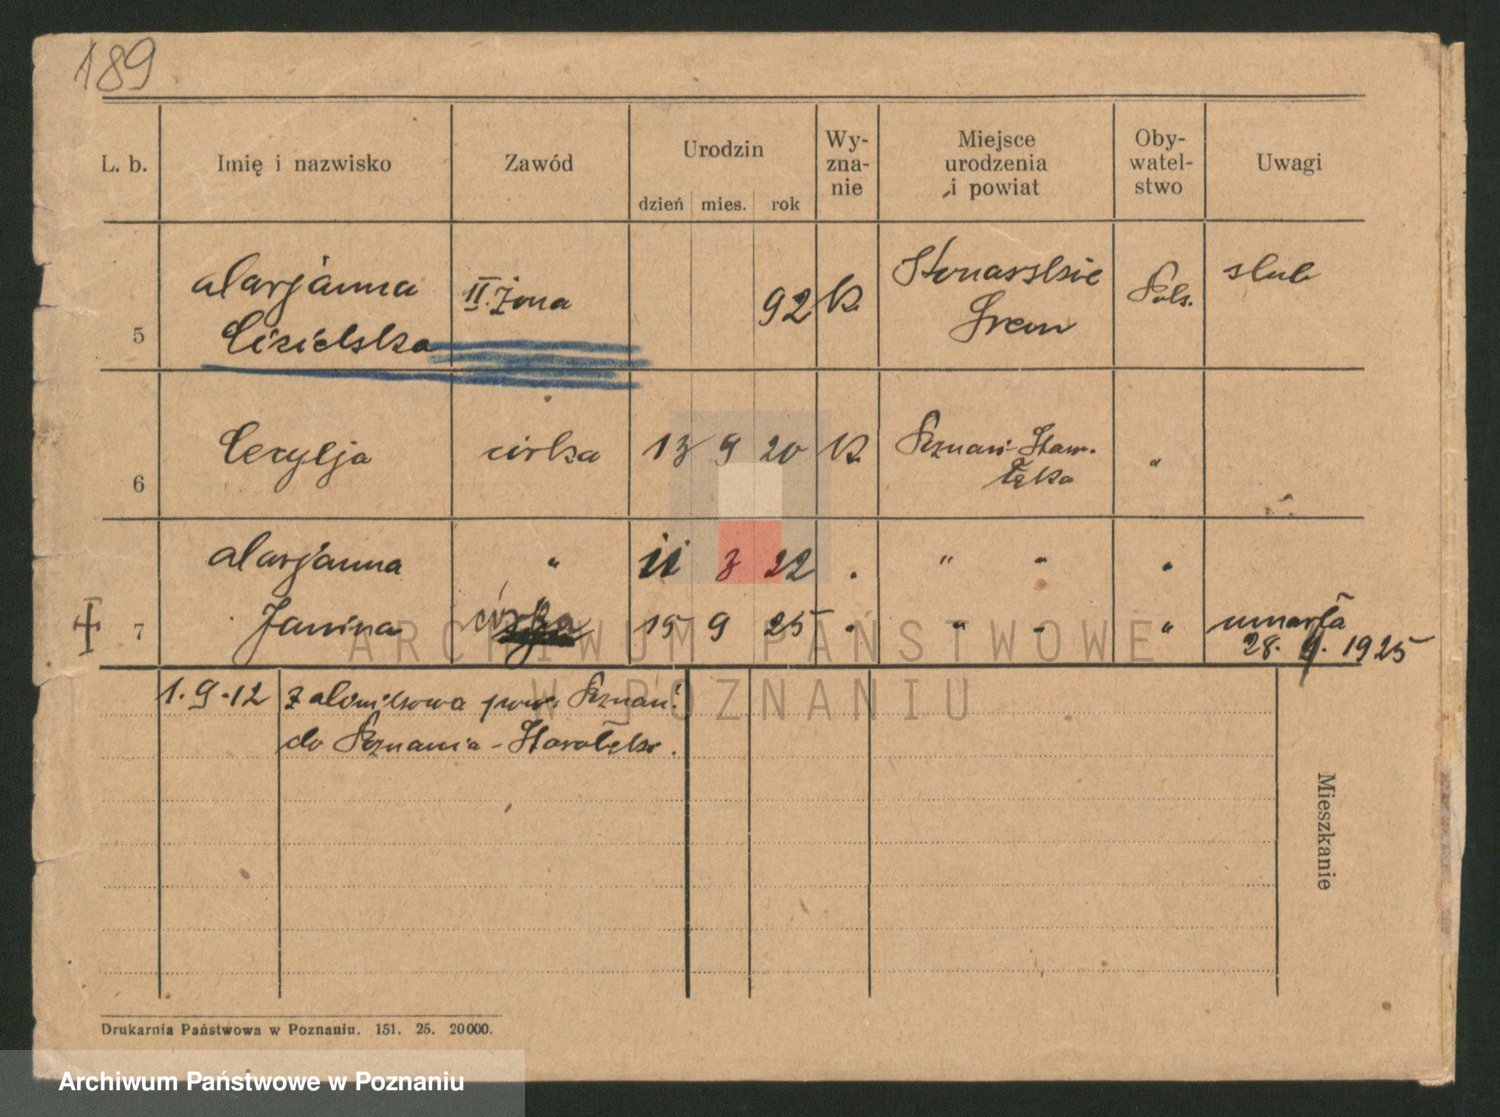 189
L. b. Imię i nazwisko Zawód Urodzin Wy-zna-nie Miejsce urodzenia i powiat Oby-watel-stwo Uwagi
dzień mies. rok
Marjanna II. żona 92 k. Śrem Pols. ślub
5
6 Cecylja córka 13 9 20 k. Poznań-Staro-łęka "
Marjanna " 11 3 22 . " " "
7 Janina córka 15 9 25 " " " " umarła
28. 9. 1925
1. 9. 12 pow. Poznań
do Poznania-Starołęki.
Mieszkanie
Drukarnia Państwowa w Poznaniu. 151. 25. 20000.
ARCHIWUM PAŃSTWOWE
W POZNANIU
Archiwum Państwowe w Poznaniu